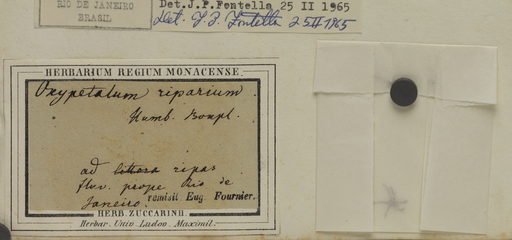 RIO DE JANEIRO
BRASIL
Det.J.P.Fontella 25 II 1965
Det. J. P. Fontella 25 II 1965
HERBARIUM REGIUM MONACENSE.
Oxypetalum riparium
Humb. Bonpl.
ad littora ripas
fluv. prope Rio de
Janeiro. remisit Eug. Fournier.
HERB. ZUCCARINII
Herbar. Univ. Ludov. Maximil.